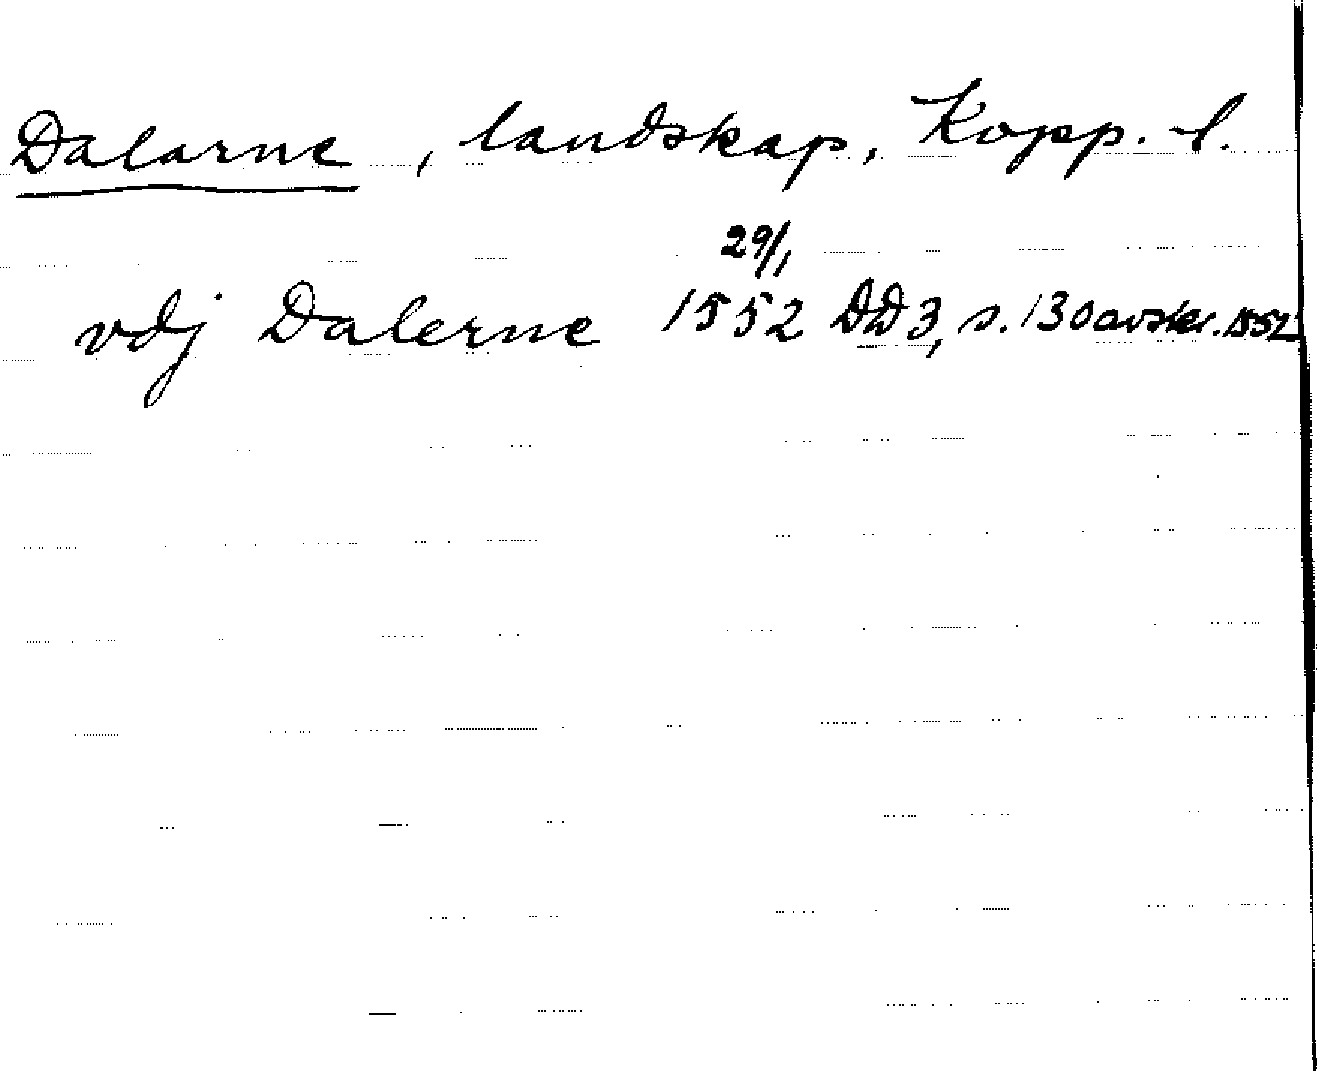 Dalarne, landskap, Kopp. l.
29/1
vdj Dalerne 1552 DD 3, s. 130 avskr. 1552